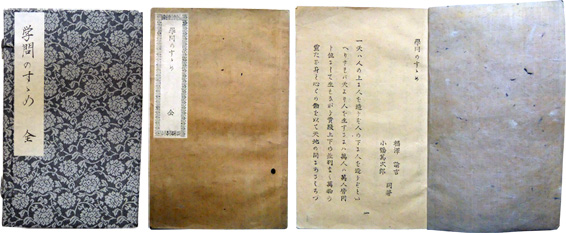 学問のすゝめ 全
学問のすゝめ
全
學問のすゝめ
福澤諭吉
小幡篤次郎 同著
一天ハ人の上に人を造らず人の下に人を造らずとい
へりされバ天より人を生ずるにハ萬人ハ萬人皆同
じ位にして生れながら貴賤上下の差別なく萬物の
靈たる身と心との働を以て天地の間にあるよろづ
一